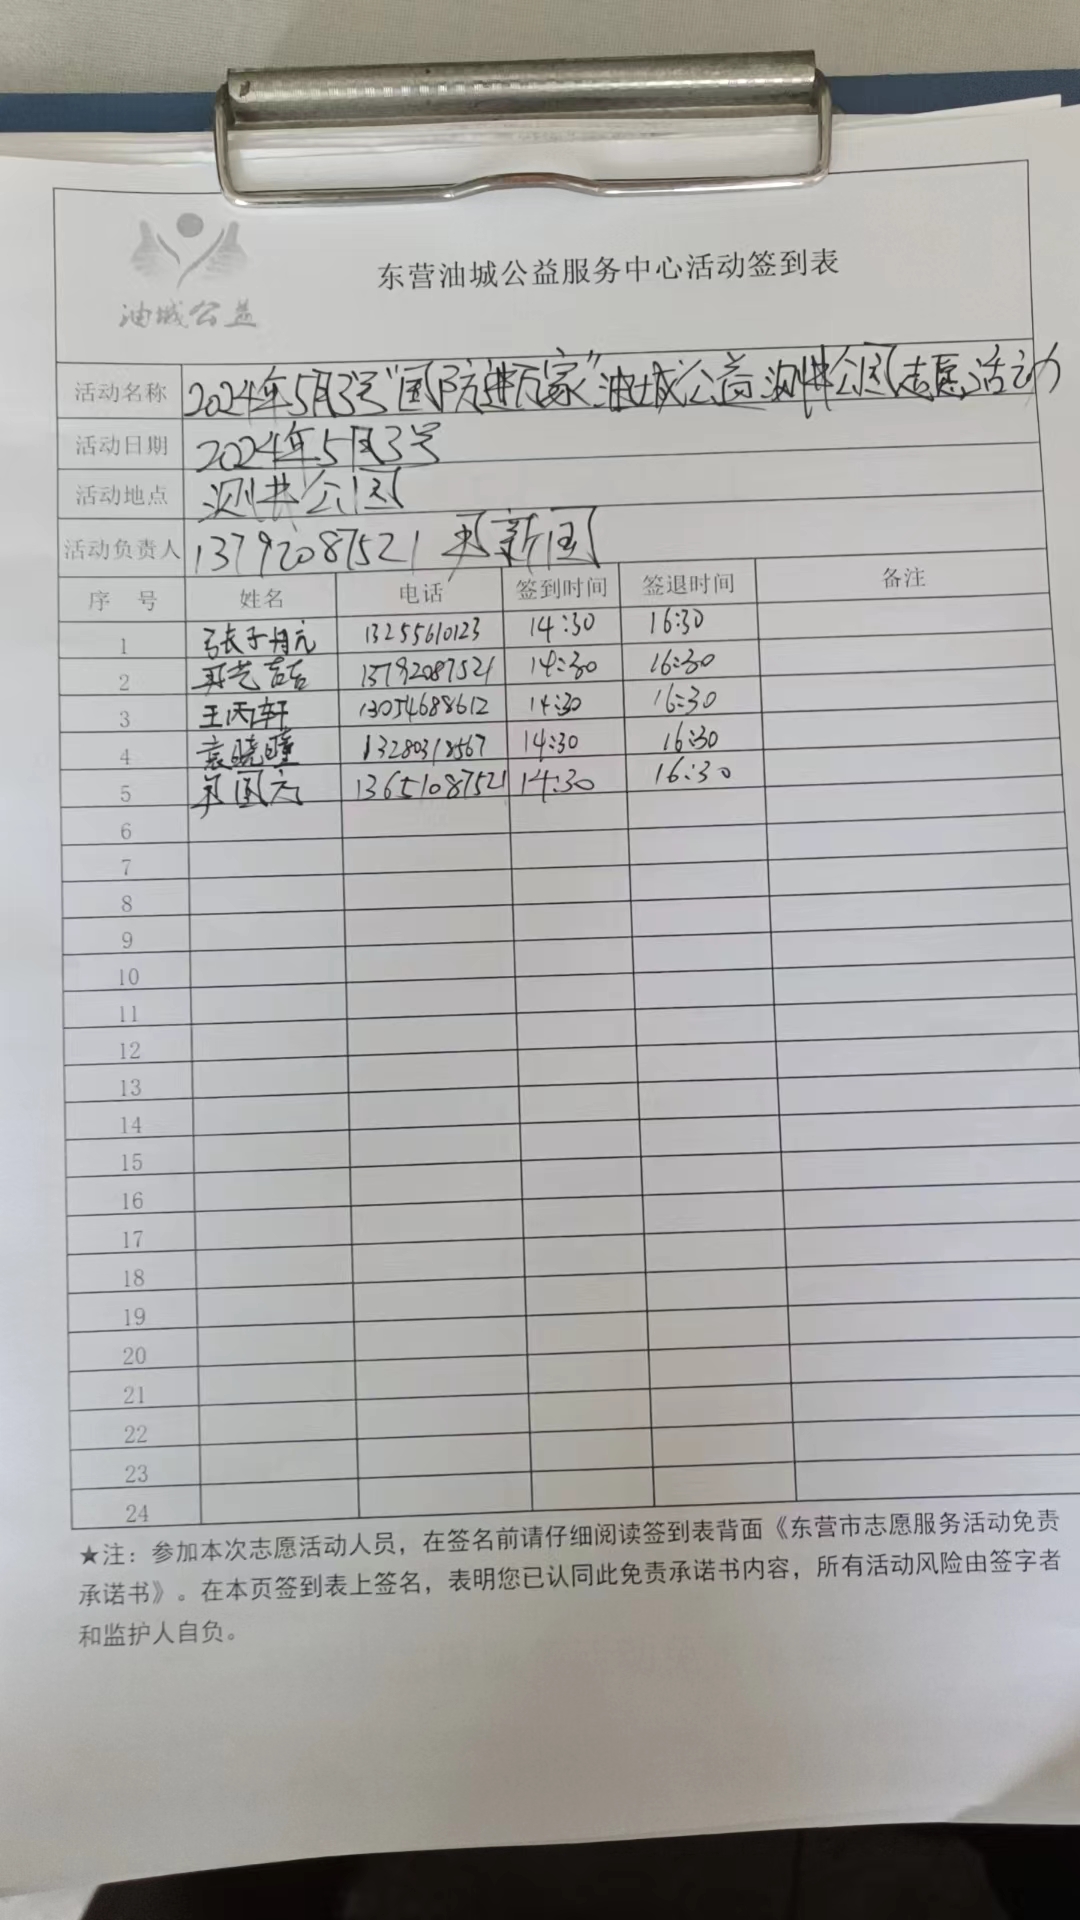 油城公益
东营油城公益服务中心活动签到表
活动名称 2024年5月3号"国防进万家"油城公益测井公园志愿活动
活动日期 2024年5月3号
活动地点 测井公园
活动负责人 13792087521 新国
序 号 姓名 电话 签到时间 签退时间 备注
1 张子月元 13255610123 14:30 16:30
2 艺喆 13792087521 14:30 16:30
3 王丙轩 13054688612 14:30 16:30
4 袁晓瞳 13280318567 14:30 16:30
5 国六 13651087521 14:30 16:30
6
7
8
9
10
11
12
13
14
15
16
17
18
19
20
21
22
23
24
★注：参加本次志愿活动人员，在签名前请仔细阅读签到表背面《东营市志愿服务活动免责
承诺书》。在本页签到表上签名，表明您已认同此免责承诺书内容，所有活动风险由签字者
和监护人自负。